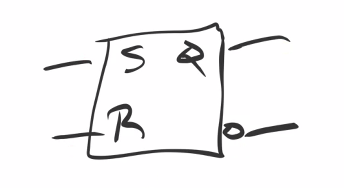 S Q
R